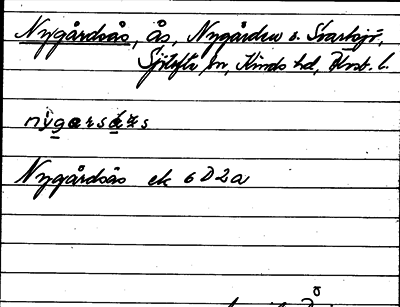 Nygårdsås, ås, Nygården s. Svartsjö,
Sjötofta sn, Kinds hd, Älvsb. l.
nỳgarsá̱ʀs
Nygårdsås ek 6D2a